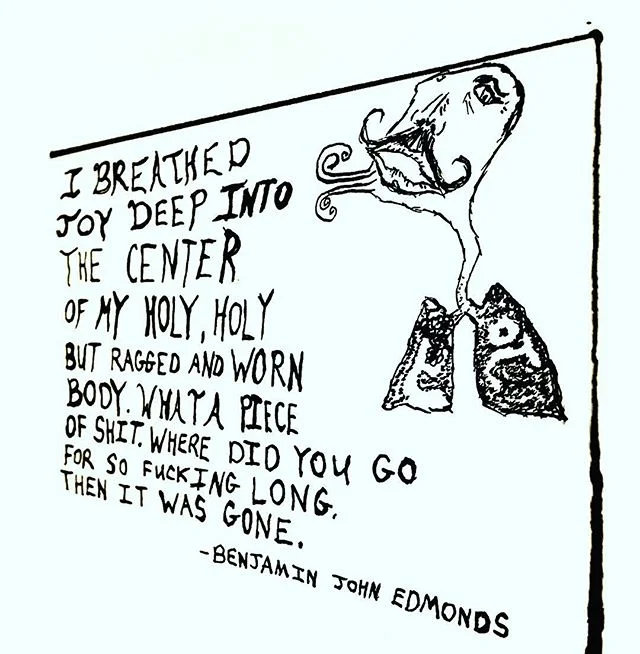 I BREATHED
JOY DEEP INTO
THE CENTER
OF MY HOLY, HOLY
BUT RAGGED AND WORN
BODY. WHAT A PIECE
OF SHIT. WHERE DID YOU GO
FOR SO FUCKING LONG.
THEN IT WAS GONE.
-BENJAMIN JOHN EDMONDS